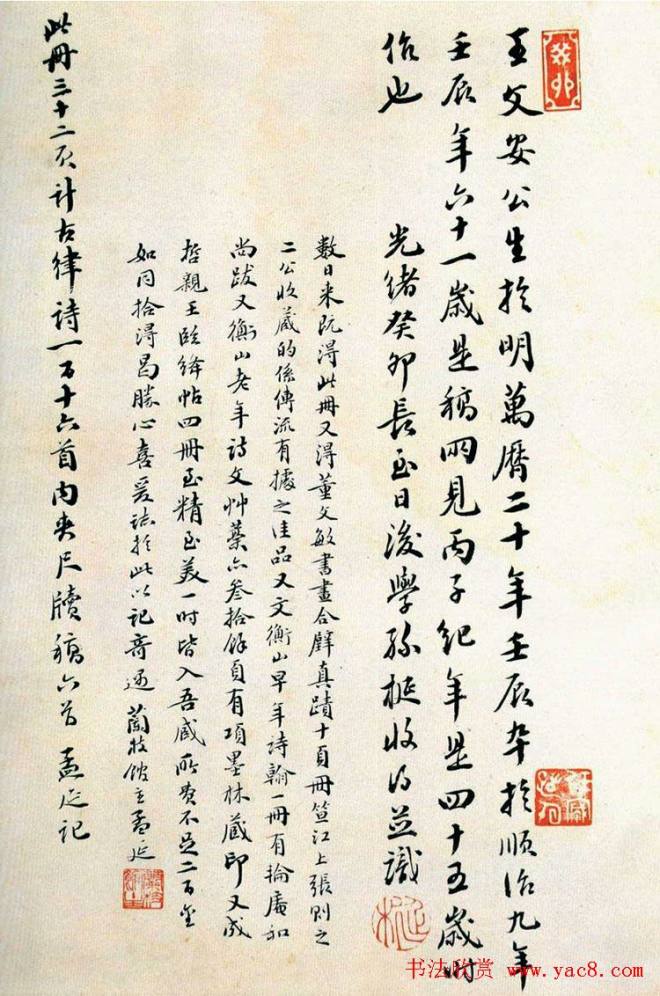 癸卯
王文安公生於明萬曆二十年壬辰卒於順治九年
壬辰年六十一歲是稿所見丙子紀年是四十五歲時
作也
光緒癸卯長至日後學孫梃收得並識
數日來既得此冊又得董文敏書畫合璧真蹟十頁冊笪江上張則之
二公收藏的係傳流有據之佳品又文衡山早年詩翰一冊有輪廣和
尚跋又衡山老年詩文艸藁六叁拾餘頁有項墨林藏印又成
哲親王臨絳帖四冊至精至美一時皆入吾藏所費不足二百金
如同拾得曷勝心喜爰誌於此以記奇遇 館主孟延
此冊三十二頁計古律詩一百十六首內夾尺牘稿六首 孟延記
书法欣赏 www.yac8.com